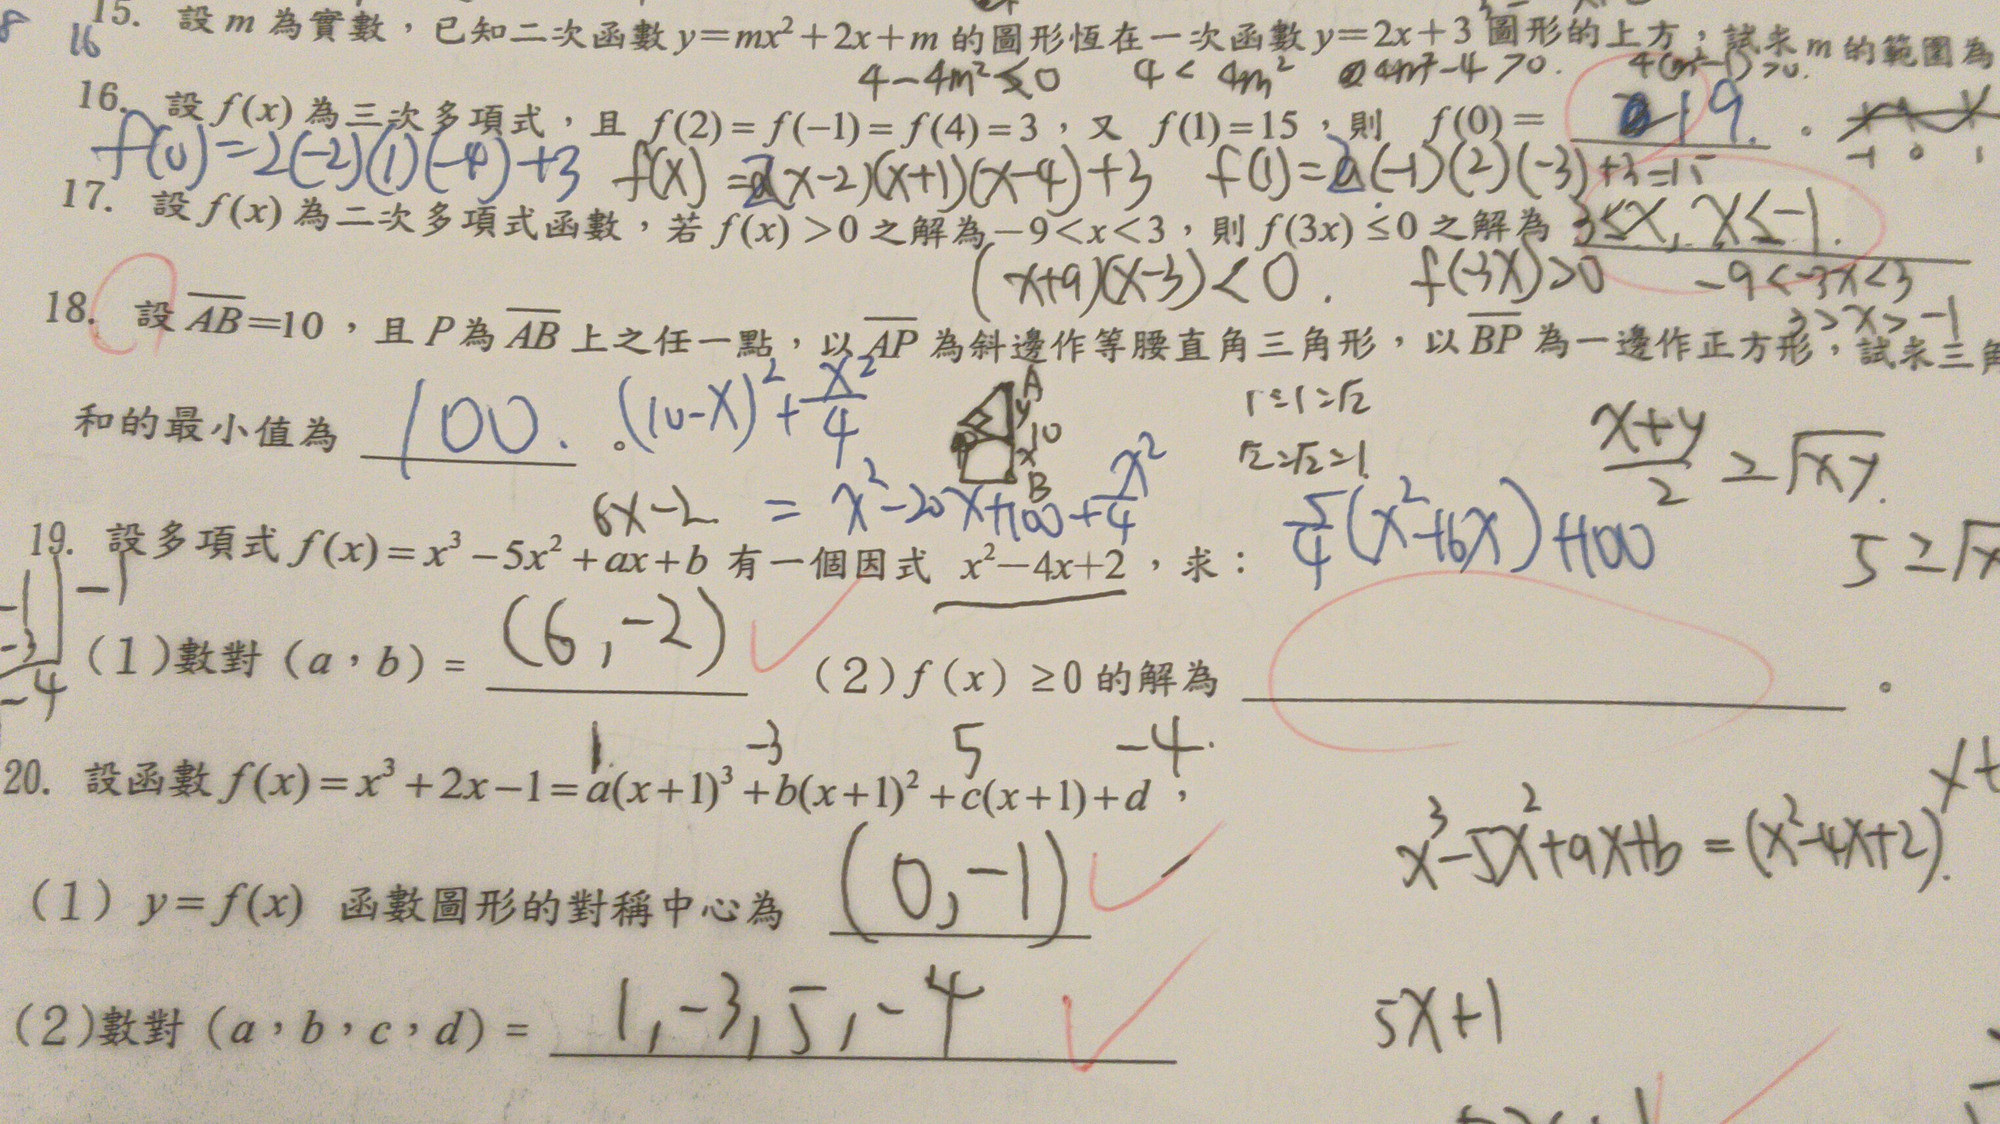 15. 設 m 為實數，已知二次函數 y=mx²+2x+m 的圖形恆在一次函數 y=2x+3 圖形的上方，試求 m 的範圍為
16
4-4m²≤0 4< 4m² 4m²-4>0.
16. 設 f(x) 為三次多項式，且 f(2)=f(-1)=f(4)=3，又 f(1)=15，則 f(0)= 19. 。
-1 0 1
f(0)=2(-2)(1)(-4)+3 f(x)=2(x-2)(x+1)(x-4)+3 f(1)=a(-1)(2)(-3)+3=15
17. 設 f(x) 為二次多項式函數，若 f(x)>0 之解為 -9<x<3，則 f(3x)≤0 之解為 3≤x, x≤-1.
(x+9)(x-3)<0. f(-3x)>0 -9<-3x<3
3>x>-1
18. 設 AB=10，且 P 為 AB 上之任一點，以 AP 為斜邊作等腰直角三角形，以 BP 為一邊作正方形，試求三角
和的最小值為 100. 。 (10-x)²+x²/4
A y 10 x B P
1:1:√2
√2:√2:1
(x+y)/2 ≥ √xy.
6x-2 = x²-20x+100+x²/4 5/4(x²+16x)+100
5≥√x
19. 設多項式 f(x)=x³-5x²+ax+b 有一個因式 x²-4x+2，求：
-1 -1
-3
-4
(1)數對 (a，b) = (6,-2) (2) f(x) ≥0 的解為 。
1 -3 5 -4.
20. 設函數 f(x)=x³+2x-1=a(x+1)³+b(x+1)²+c(x+1)+d，
x+
x³-5x²+ax+b=(x²-4x+2).
(1) y=f(x) 函數圖形的對稱中心為 (0,-1)
(2)數對 (a，b，c，d) = 1,-3,5,-4
5x+1